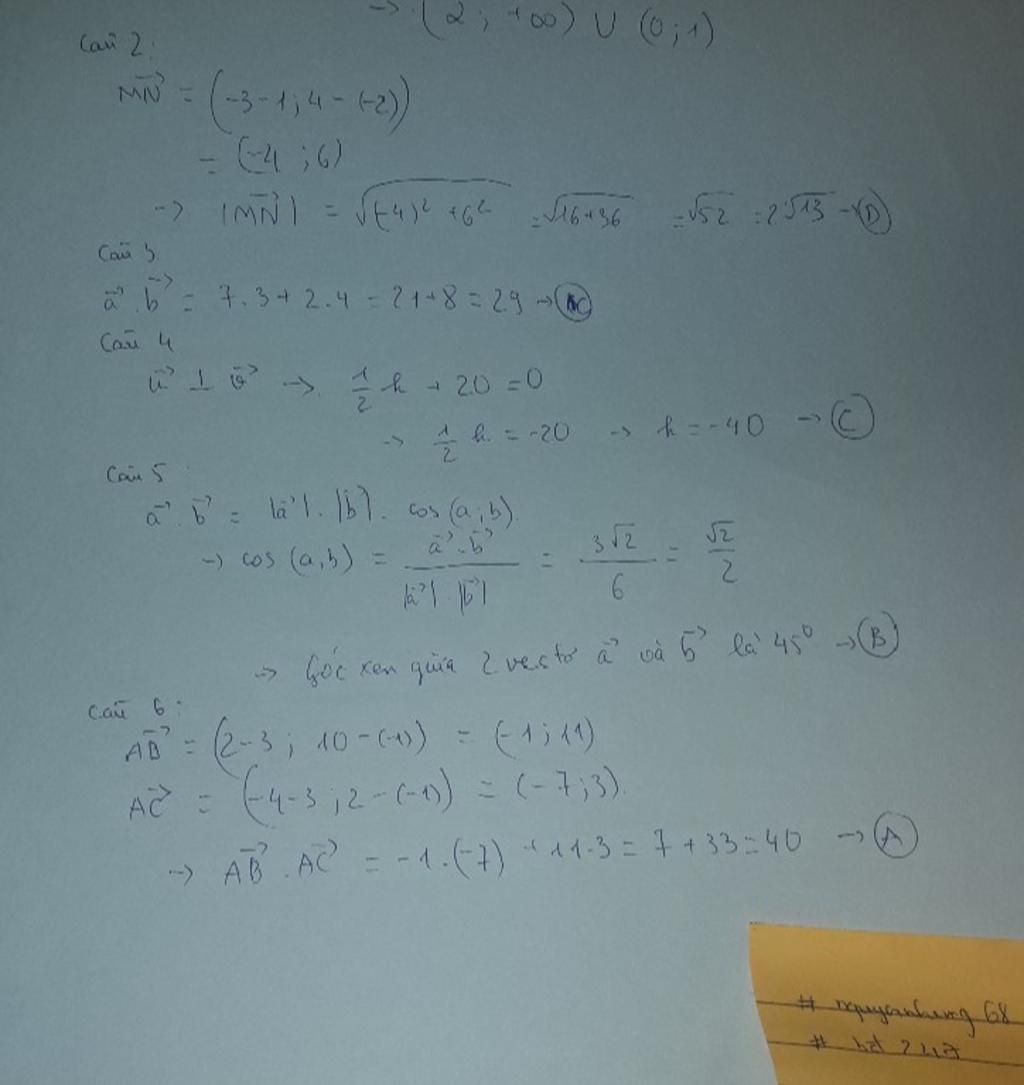 → (2 ; +∞) ∪ (0 ; 1)
Câu 2:
MN→ = (-3-1 ; 4 - (-2))
= (-4 ; 6)
→ |MN→| = √((-4)² + 6²) = √(16+36) = √52 = 2√13 → D
Câu 3
a→ . b→ = 7.3 + 2.4 = 21+8 = 29 → C
Câu 4
u→ ⊥ v→ → 1/2 k + 20 = 0
→ 1/2 k = -20 → k = -40 → C
Câu 5:
a→ . b→ = |a→| . |b→| . cos(a;b)
→ cos (a,b) = (a→ . b→)/(|a→| . |b→|) = 3√2/6 = √2/2
→ Góc xen giữa 2 vectơ a→ và b→ là 45° → B
Câu 6:
AB→ = (2-3 ; 10-(-1)) = (-1 ; 11)
AC→ = (-4-3 ; 2-(-1)) = (-7 ; 3).
→ AB→ . AC→ = -1.(-7) + 11.3 = 7 + 33 = 40 → A
# 68
# 247